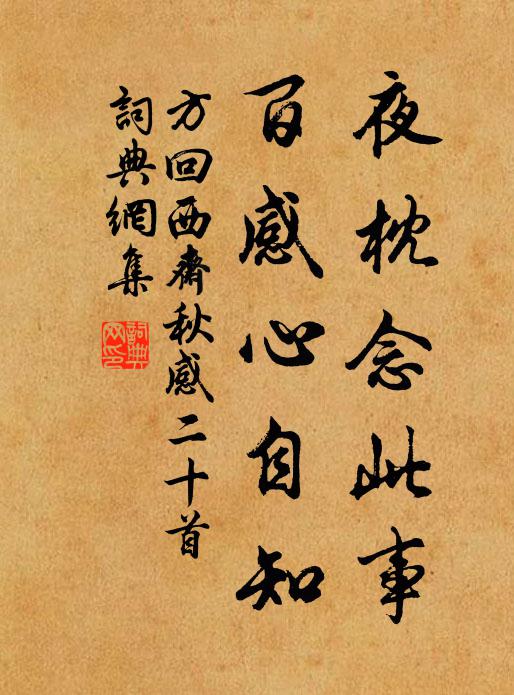 夜枕念此事
百感心自知
方回西齋秋感二十首
詞典網集
詞典网印